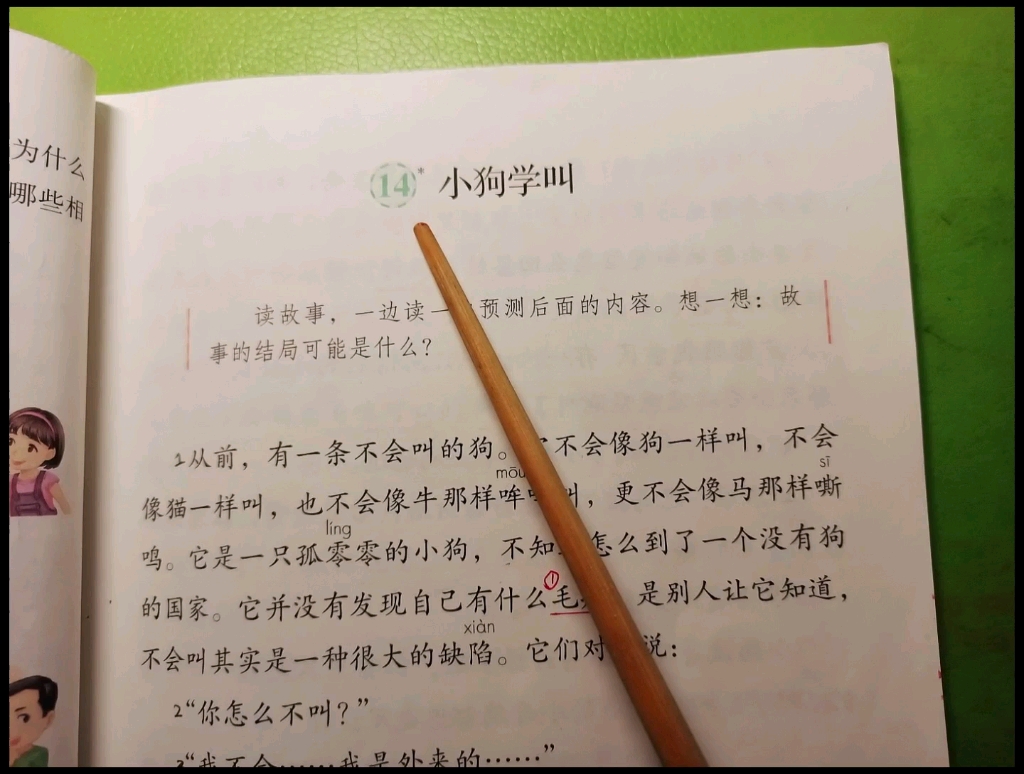 为什么
哪些相
14* 小狗学叫
读故事，一边读一 预测后面的内容。想一想：故
事的结局可能是什么？
1从前，有一条不会叫的狗。 不会像狗一样叫，不会
mōu sī
像猫一样叫，也不会像牛那样哞 叫，更不会像马那样嘶
líng
鸣。它是一只孤零零的小狗，不知 怎么到了一个没有狗
①
的国家。它并没有发现自己有什么毛 是别人让它知道，
xiàn
不会叫其实是一种很大的缺陷。它们对 说：
2“你怎么不叫？”
3“我不会……我是外来的……”